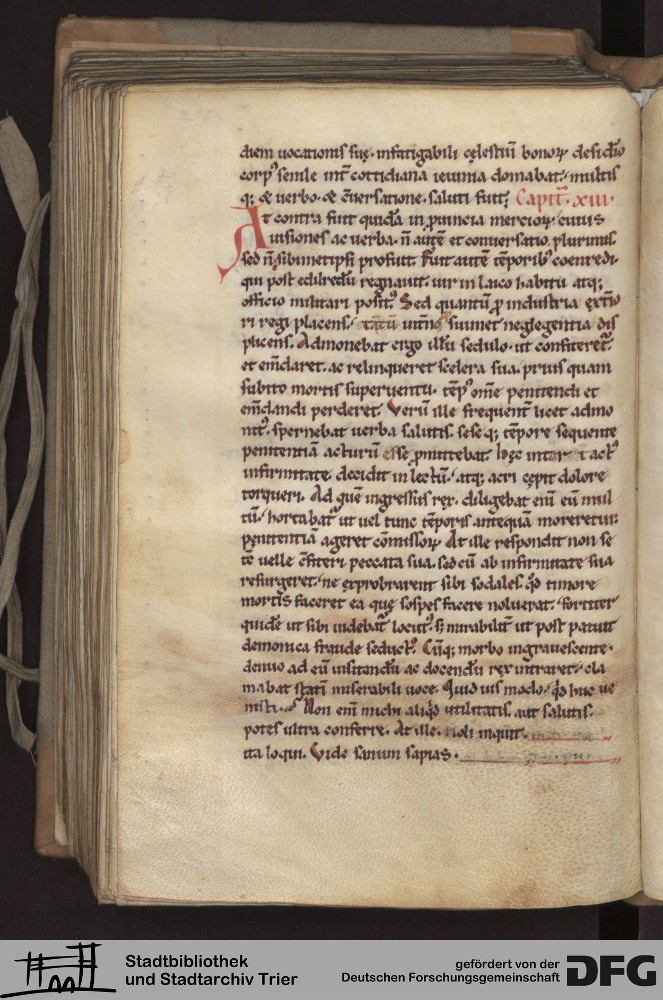 diem uocationis suę. infatigabili cęlestiū bonoꝝ desid̄io
corpꝰ senile int̄ cottidiana ieiunia domabat. multis
q; & uerbo. & ꝯuersatione. saluti fuit; Capit̄. xiii.
At contra fuit quidā in ꝓuincia mercioꝝ. cuius
uisiones ac uerba. n̄ autē et conuersatio plurimis.
sed n̄ sibimetipsi profuit. Fuit autē tēporibꝰ coenredi.
qui post edilredū regnauit. uir in laico habitu atq;
officio militari positꝰ. Sed quantū ꝓ industria ext̄io
ri regi placens. tantū int̄na suimet neglegentia dis
plicens. Admonebat ergo illū sedulo. ut confiteret̄.
et em̄daret. ac relinqueret scelera sua. prius quam
subito mortis superuentu. tēpꝰ om̄e penitendi et
em̄dandi perderet. Verū ille frequent̄ licet admo
nitꝰ. spernebat uerba salutis. seseq; tēpore sequente
penitentiā acturū esse ꝓmittebat. hęc inter tactꝰ
infirmitate. decidit in lectū. atq; acri cępit dolore
torqueri. Ad quē ingressus rex. diligebat enī eū mul
tū. hortabat̄ ut uel tunc tēporis antequā moreretur
penitentiā ageret cōmissoꝝ. At ille respondit non se
tē uelle ꝯfiteri peccata sua. sed cū ab infirmitate sua
resurgeret. ne exprobrarent sibi sodales. qđ timore
mortis faceret ea quę sospes facere noluerat. fortiter
quidē ut sibi uidebat̄ locutꝰ. s; mirabilit̄ ut post patuit
demonica fraude seductꝰ. Cūq; morbo ingrauescente.
denuo ad eū uisitandū ac docendū rex intraret. cla
mabat statī miserabili uoce. Quid uis modo. qđ huc ue
nisti. Non enī michi aliqđ utilitatis. aut salutis.
potes ultra conferre. At ille. noli inquit.
ita loqui. Vide sanum sapias.
Stadtbibliothek
und Stadtarchiv Trier
gefördert von der
Deutschen Forschungsgemeinschaft
DFG